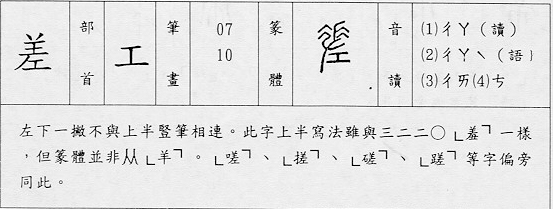 差 部首 工 筆畫 07 10 篆體 音讀 (1)ㄔㄚ（讀）
(2)ㄔㄚˋ（語）
(3)ㄔㄞ(4)ㄘ
左下一撇不與上半豎筆相連。此字上半寫法雖與三二二〇「羞」一樣
，但篆體並非从「羊」。「嗟」、「搓」、「磋」、「蹉」等字偏旁
同此。